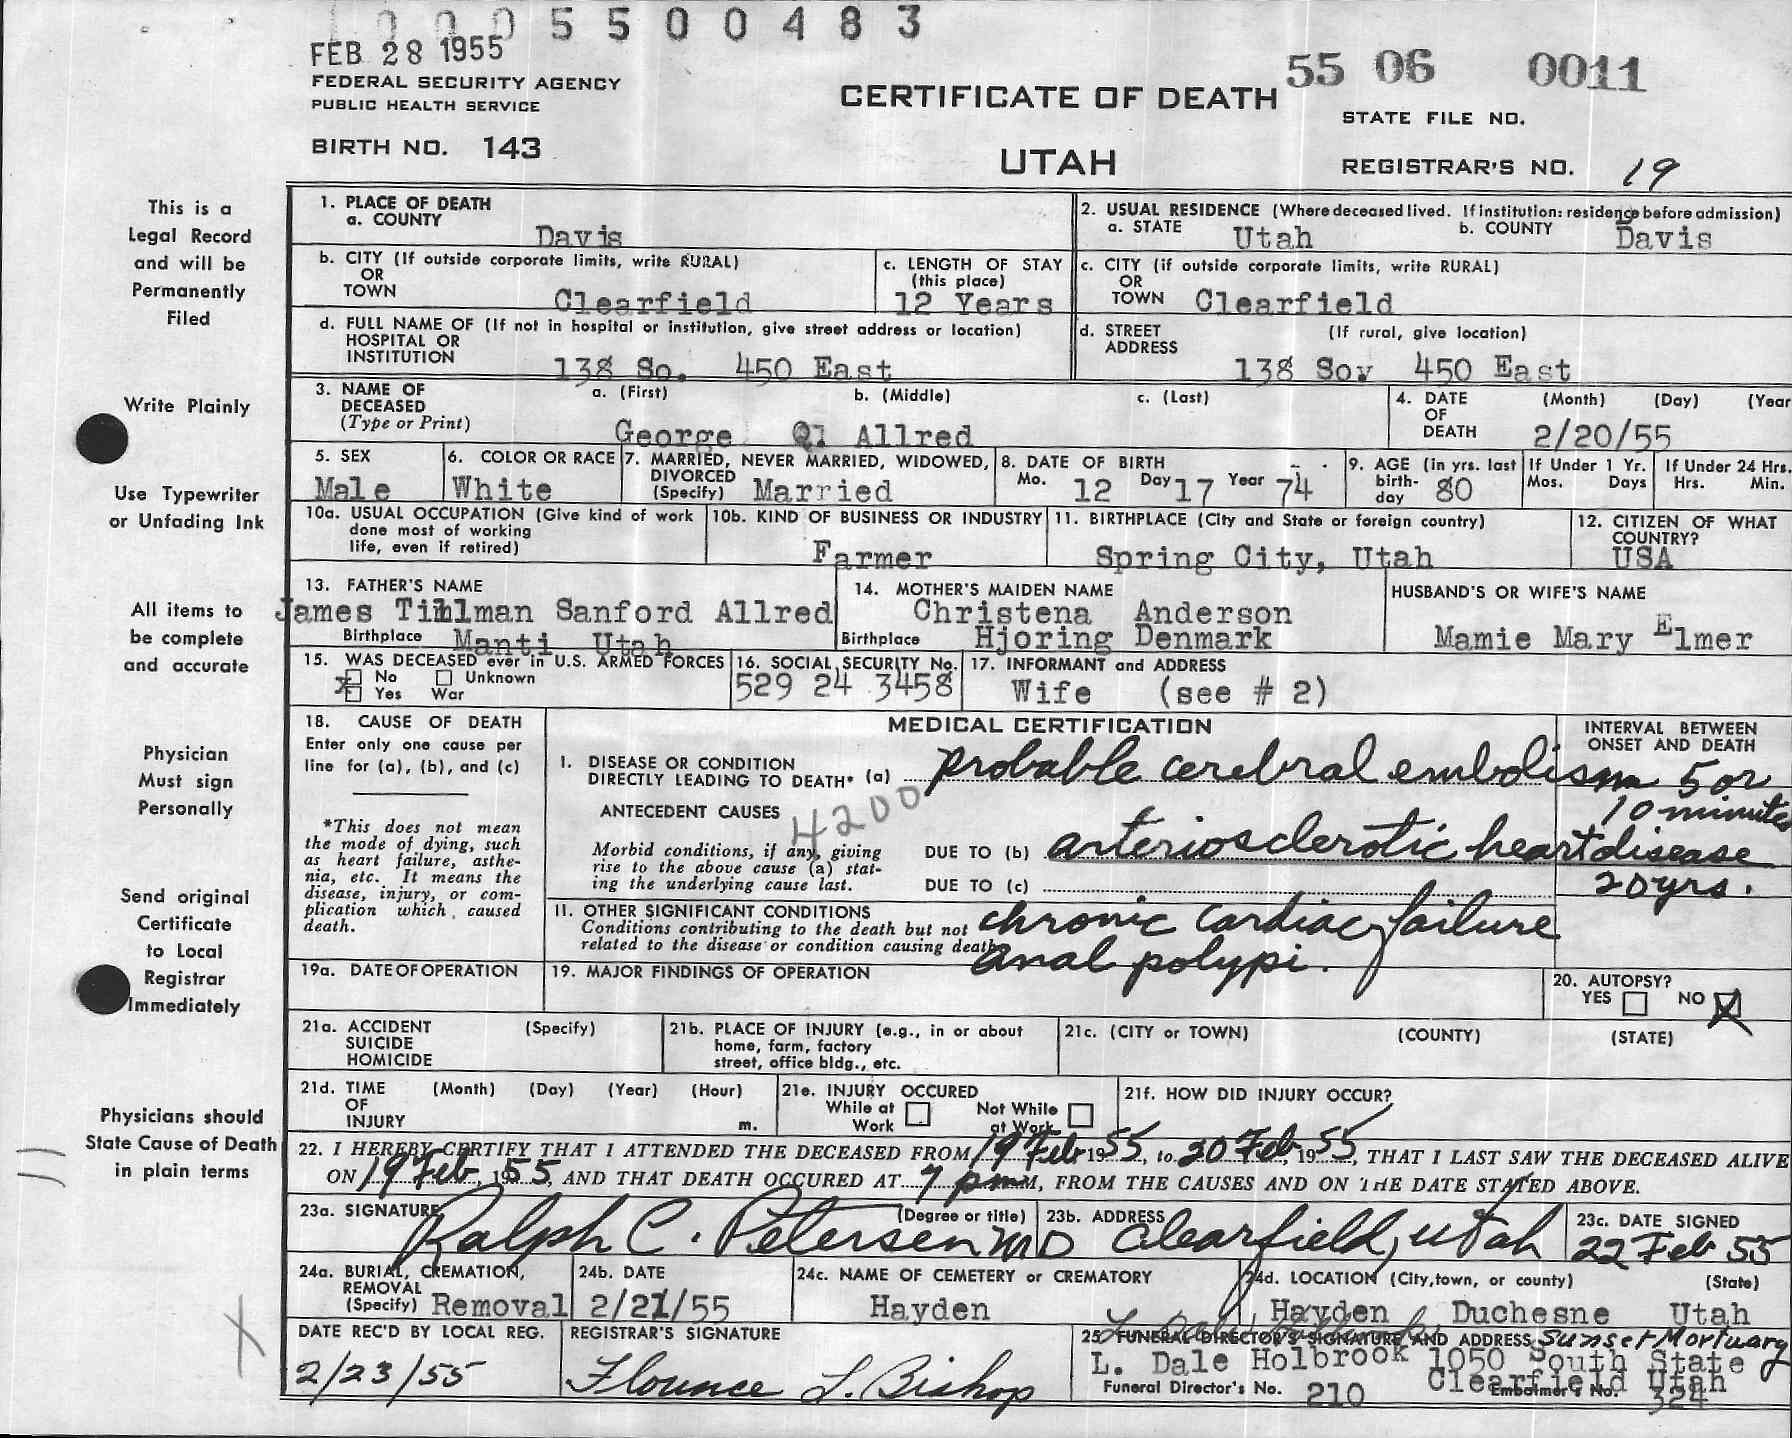 10005500483
FEB 28 1955
FEDERAL SECURITY AGENCY
PUBLIC HEALTH SERVICE
BIRTH NO. 143
CERTIFICATE OF DEATH
UTAH
55 06 0011
STATE FILE NO.
REGISTRAR'S NO. 19
This is a
Legal Record
and will be
Permanently
Filed
Write Plainly
Use Typewriter
or Unfading Ink
All items to
be complete
and accurate
Physician
Must sign
Personally
Send original
Certificate
to Local
Registrar
Immediately
Physicians should
State Cause of Death
in plain terms
1. PLACE OF DEATH
a. COUNTY Davis
2. USUAL RESIDENCE (Where deceased lived. If institution: residence before admission)
a. STATE Utah b. COUNTY Davis
b. CITY (If outside corporate limits, write RURAL)
OR
TOWN Clearfield
c. LENGTH OF STAY
(this place)
12 Years
c. CITY (if outside corporate limits, write RURAL)
OR
TOWN Clearfield
d. FULL NAME OF (If not in hospital or institution, give street address or location)
HOSPITAL OR
INSTITUTION 138 So. 450 East
d. STREET (If rural, give location)
ADDRESS 138 Soy 450 East
3. NAME OF a. (First) b. (Middle) c. (Last)
DECEASED
(Type or Print) George Q. Allred
4. DATE (Month) (Day) (Year
OF
DEATH 2/20/55
5. SEX
Male
6. COLOR OR RACE
White
7. MARRIED, NEVER MARRIED, WIDOWED,
DIVORCED
(Specify) Married
8. DATE OF BIRTH
Mo. 12 Day 17 Year 74
9. AGE (in yrs. last
birth-
day 80
If Under 1 Yr.
Mos. Days
If Under 24 Hrs.
Hrs. Min.
10a. USUAL OCCUPATION (Give kind of work
done most of working
life, even if retired)
10b. KIND OF BUSINESS OR INDUSTRY
Farmer
11. BIRTHPLACE (City and State or foreign country)
Spring City, Utah
12. CITIZEN OF WHAT
COUNTRY?
USA
13. FATHER'S NAME
James Tillman Sanford Allred
Birthplace Manti Utah
14. MOTHER'S MAIDEN NAME
Christena Anderson
Birthplace Hjoring Denmark
HUSBAND'S OR WIFE'S NAME
Mamie Mary Elmer
15. WAS DECEASED ever in U.S. ARMED FORCES
X No Unknown
Yes War
16. SOCIAL SECURITY No.
529 24 3458
17. INFORMANT and ADDRESS
Wife (see # 2)
18. CAUSE OF DEATH
Enter only one cause per
line for (a), (b), and (c)
*This does not mean
the mode of dying, such
as heart failure, asthe-
nia, etc. It means the
disease, injury, or com-
plication which caused
death.
MEDICAL CERTIFICATION
INTERVAL BETWEEN
ONSET AND DEATH
1. DISEASE OR CONDITION
DIRECTLY LEADING TO DEATH* (a) probable cerebral embolism 5 or
10 minutes
ANTECEDENT CAUSES 4200
Morbid conditions, if any, giving
rise to the above cause (a) stat-
ing the underlying cause last.
DUE TO (b) arteriosclerotic heart disease
DUE TO (c) 20 yrs.
11. OTHER SIGNIFICANT CONDITIONS
Conditions contributing to the death but not
related to the disease or condition causing death
chronic cardiac failure
anal polypi.
19a. DATE OF OPERATION
19. MAJOR FINDINGS OF OPERATION
20. AUTOPSY?
YES NO X
21a. ACCIDENT (Specify)
SUICIDE
HOMICIDE
21b. PLACE OF INJURY (e.g., in or about
home, farm, factory
street, office bldg., etc.
21c. (CITY or TOWN) (COUNTY) (STATE)
21d. TIME (Month) (Day) (Year) (Hour)
OF
INJURY m.
21e. INJURY OCCURED
While at Not While
Work at Work
21f. HOW DID INJURY OCCUR?
22. I HEREBY CERTIFY THAT I ATTENDED THE DECEASED FROM 19 Feb 1955, to 20 Feb, 1955, THAT I LAST SAW THE DECEASED ALIVE
ON 19 Feb, 1955, AND THAT DEATH OCCURED AT 7 pm M, FROM THE CAUSES AND ON THE DATE STATED ABOVE.
23a. SIGNATURE (Degree or title)
Ralph C. Petersen MD
23b. ADDRESS
Clearfield, Utah
23c. DATE SIGNED
22 Feb 55
24a. BURIAL, CREMATION,
REMOVAL
(Specify) Removal
24b. DATE
2/21/55
24c. NAME OF CEMETERY or CREMATORY
Hayden
24d. LOCATION (City, town, or county) (State)
Hayden Duchesne Utah
DATE REC'D BY LOCAL REG.
2/23/55
REGISTRAR'S SIGNATURE
Flounce L. Bishop
25. FUNERAL DIRECTOR'S SIGNATURE AND ADDRESS Sunset Mortuary
L. Dale Holbrook 1050 South State
Clearfield Utah
Funeral Director's No. 210 Embalmer's No. 324